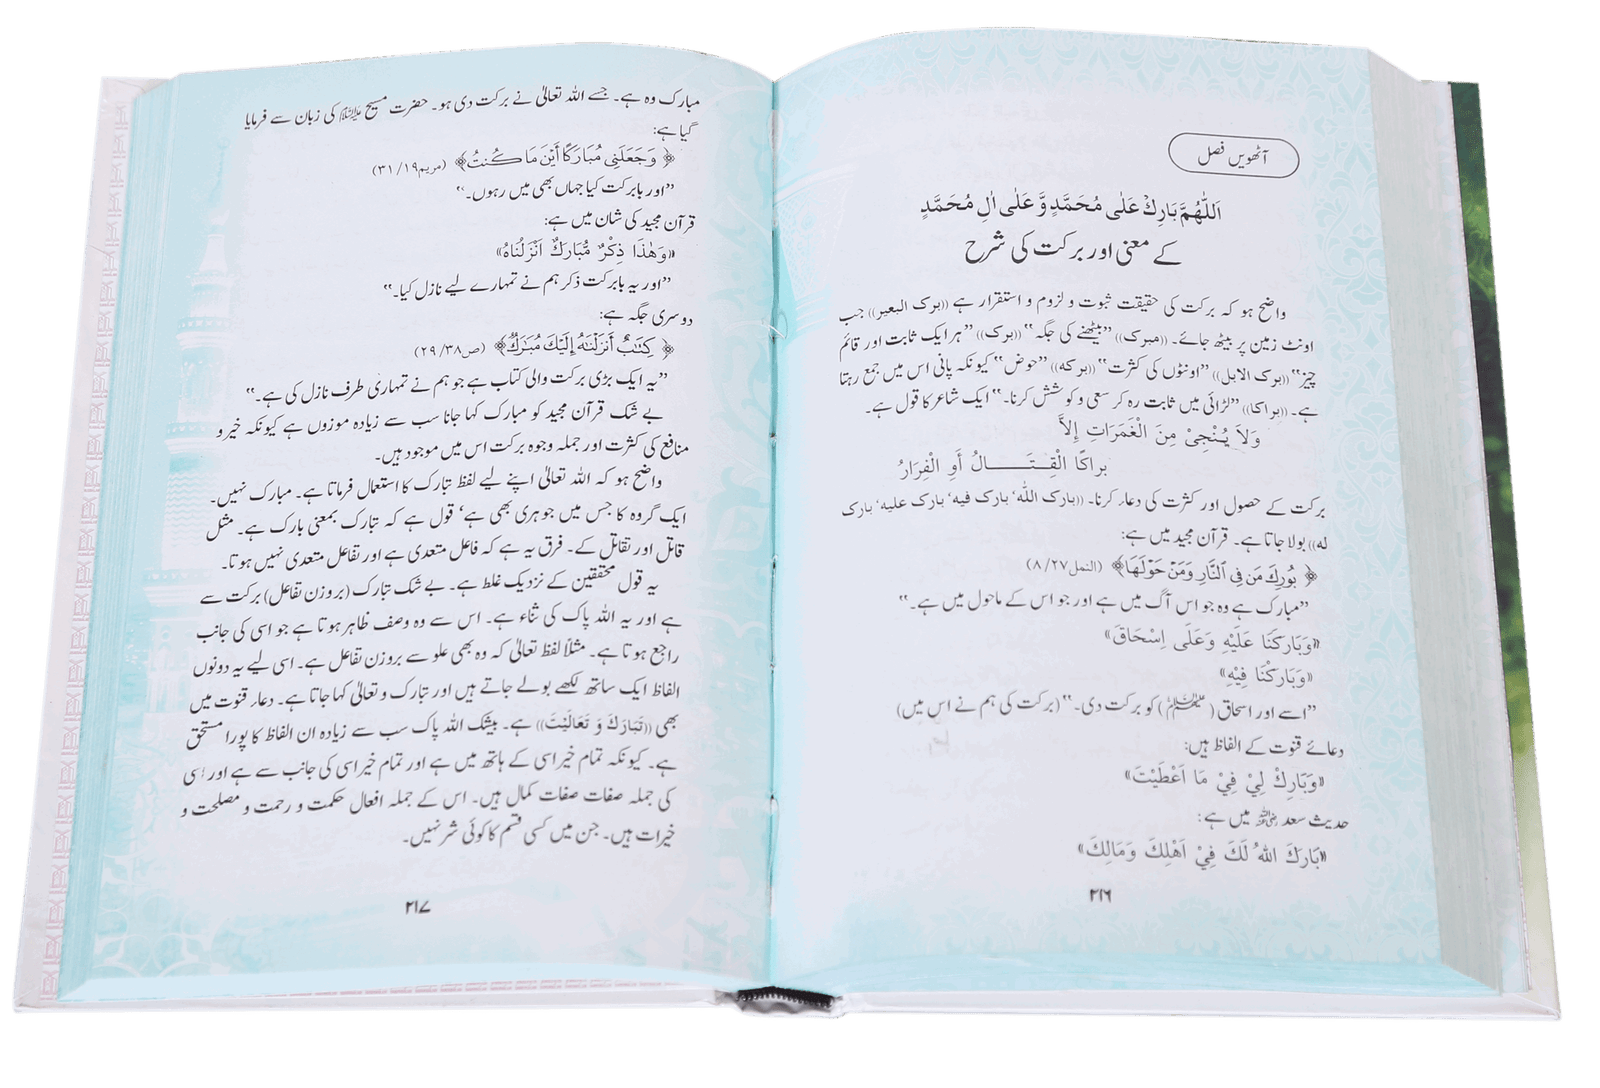 آٹھویں فصل
اَللّٰهُمَّ بَارِكْ عَلٰى مُحَمَّدٍ وَّ عَلٰى اٰلِ مُحَمَّدٍ
کے معنی اور برکت کی شرح
واضح ہو کہ برکت کی حقیقت ثبوت و لزوم و استقرار ہے ((برک البعیر)) جب
اونٹ زمین پر بیٹھ جائے۔ ((مبرک)) ”بیٹھنے کی جگہ“ ((برک)) ”ہر ایک ثابت اور قائم
چیز“ ((برک الابل)) ”اونٹوں کی کثرت“ ((برکہ)) ”حوض“ کیونکہ پانی اس میں جمع رہتا
ہے۔ ((براکا)) ”لڑائی میں ثابت رہ کر سعی و کوشش کرنا۔“ ایک شاعر کا قول ہے۔
وَلاَ يُنْجِىْ مِنَ الْغَمَرَاتِ اِلاَّ
براكَا الْقِتَـــالُ أَوِ الْفِرَارُ
برکت کے حصول اور کثرت کی دعاء کرنا۔ ((بارك الله‘ بارك فيه‘ بارك عليه‘ بارك
له)) بولا جاتا ہے۔ قرآن مجید میں ہے:
﴿ بُورِكَ مَن فِى ٱلنَّارِ وَمَنْ حَوْلَهَا﴾ (النمل۲۷/ ۸)
”مبارک ہے وہ جو اس آگ میں ہے اور جو اس کے ماحول میں ہے۔“
«وَبَارَكْنَا عَلَيْهِ وَعَلَى اِسْحَاقَ»
«وَبَارَكْنَا فِيْهِ»
”اسے اور اسحاق (علیہما السلام) کو برکت دی۔“ (برکت کی ہم نے اس میں)
دعائے قنوت کے الفاظ ہیں:
«وَبَارِكْ لِيْ فِيْ مَا اَعْطَيْتَ»
حدیث سعد رضی اللہ عنہ میں ہے:
«بَارَكَ اللهُ لَكَ فِيْ اَهْلِكَ وَمَالِكَ»
۲۱۶
مبارک وہ ہے۔ جسے اللہ تعالیٰ نے برکت دی ہو۔ حضرت مسیح علیہ السلام کی زبان سے فرمایا
گیا ہے:
﴿ وَجَعَلَنِى مُبَارَكًا أَيْنَ مَا كُنتُ﴾ (مریم۱۹/ ۳۱)
”اور بابرکت کیا جہاں بھی میں رہوں۔“
قرآن مجید کی شان میں ہے:
«وَهٰذَا ذِكْرٌ مُّبَارَكٌ اَنْزَلْنَاهُ»
”اور یہ بابرکت ذکر ہم نے تمہارے لیے نازل کیا۔“
دوسری جگہ ہے:
﴿ كِتَٰبٌ أَنزَلْنَٰهُ إِلَيْكَ مُبَٰرَكٌ﴾ (ص۳۸/ ۲۹)
”یہ ایک بڑی برکت والی کتاب ہے جو ہم نے تمہاری طرف نازل کی ہے۔“
بے شک قرآن مجید کو مبارک کہا جانا سب سے زیادہ موزوں ہے کیونکہ خیر و
منافع کی کثرت اور جملہ وجوہ برکت اس میں موجود ہیں۔
واضح ہو کہ اللہ تعالیٰ اپنے لیے لفظ تبارک کا استعمال فرماتا ہے۔ مبارک نہیں۔
ایک گروہ کا جس میں جوہری بھی ہے‘ قول ہے کہ تبارک بمعنی بارک ہے۔ مثل
قاتل اور تقاتل کے۔ فرق یہ ہے کہ فاعل متعدی ہے اور تفاعل متعدی نہیں ہوتا۔
یہ قول محققین کے نزدیک غلط ہے۔ بے شک تبارک (بروزن تفاعل) برکت سے
ہے اور یہ اللہ پاک کی ثناء ہے۔ اس سے وہ وصف ظاہر ہوتا ہے جو اسی کی جانب
راجع ہوتا ہے۔ مثلاً لفظ تعالیٰ کہ وہ بھی علو سے بروزن تفاعل ہے۔ اسی لیے یہ دونوں
الفاظ ایک ساتھ لکھے بولے جاتے ہیں اور تبارک و تعالیٰ کہا جاتا ہے۔ دعاء قنوت میں
بھی ((تَبَارَكَ وَ تَعَالَيْتَ)) ہے۔ بیشک اللہ پاک سب سے زیادہ ان الفاظ کا پورا مستحق
ہے۔ کیونکہ تمام خیر اسی کے ہاتھ میں ہے اور تمام خیر اسی کی جانب سے ہے اور اسی
کی جملہ صفات صفات کمال ہیں۔ اس کے جملہ افعال حکمت و رحمت و مصلحت و
خیرات ہیں۔ جن میں کسی قسم کا کوئی شر نہیں۔
۲۱۷